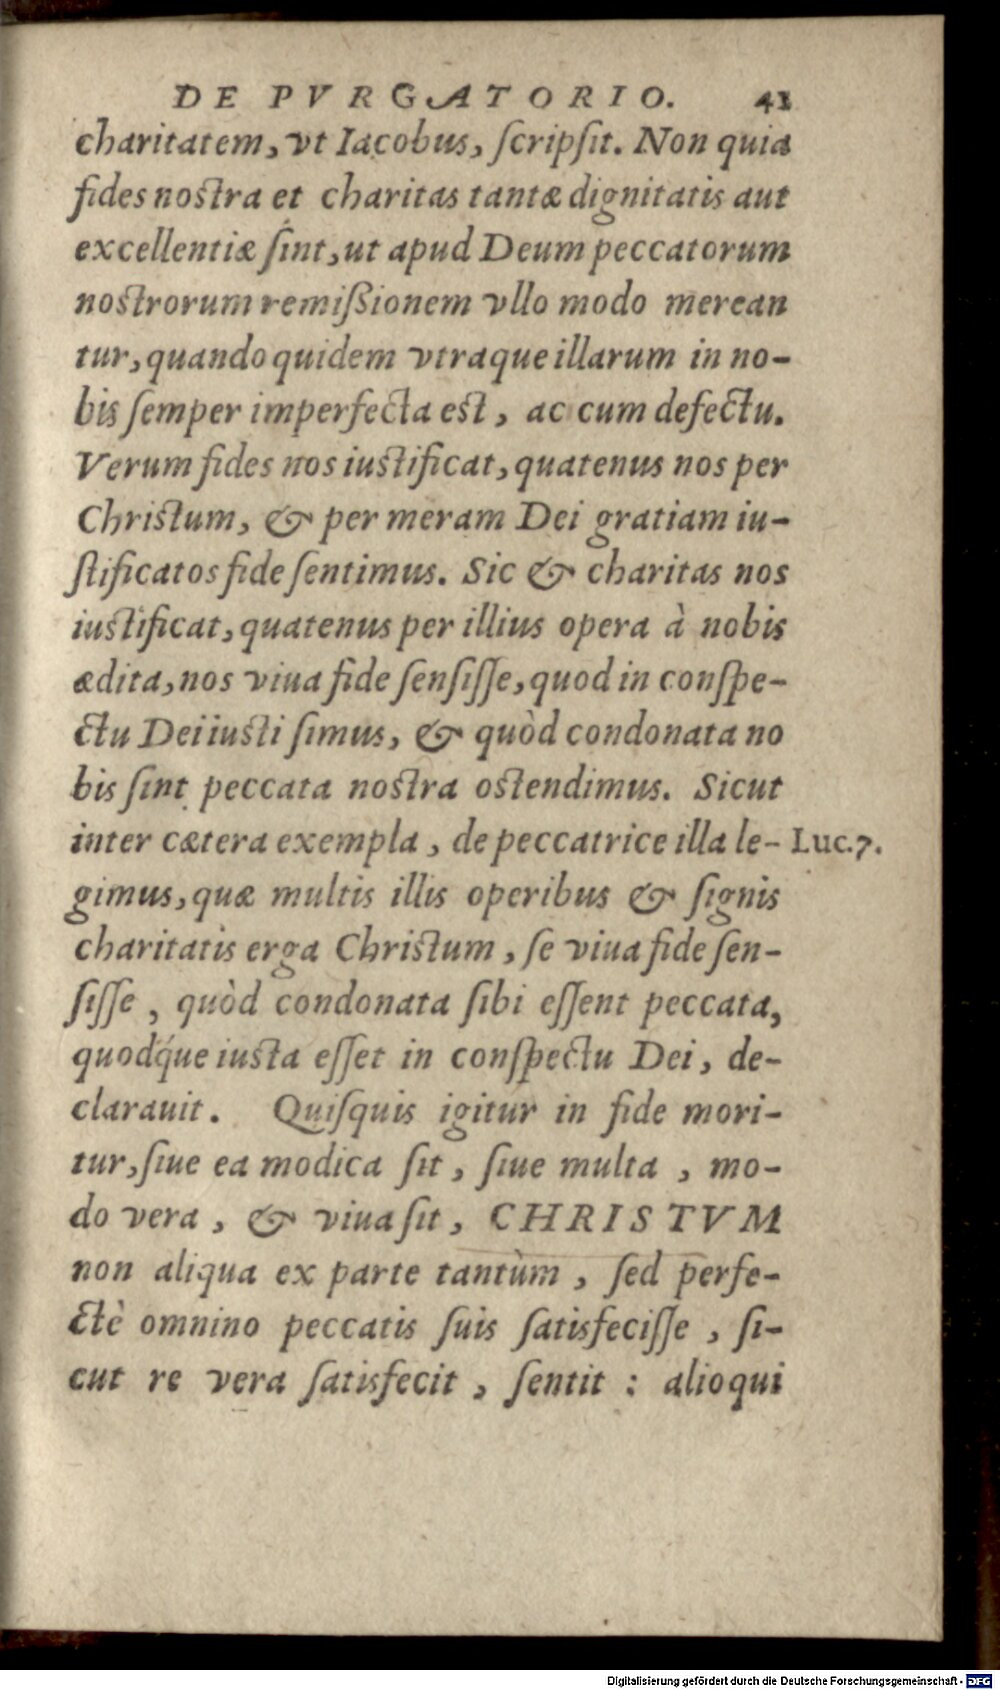 DE PVRGATORIO. 41
charitatem, vt Iacobus, ſcripſit. Non quia
fides noſtra et charitas tantæ dignitatis aut
excellentiæ ſint, ut apud Deum peccatorum
noſtrorum remiſſionem vllo modo merean
tur, quando quidem vtraque illarum in no-
bis ſemper imperfecta eſt, ac cum defectu.
Verum fides nos iuſtificat, quatenus nos per
Chriſtum, & per meram Dei gratiam iu-
ſtificatos fide ſentimus. Sic & charitas nos
iuſtificat, quatenus per illius opera à nobis
ædita, nos viua fide ſenſiſſe, quod in conſpe-
ctu Dei iuſti ſimus, & quòd condonata no
bis ſint peccata noſtra oſtendimus. Sicut
inter cætera exempla, de peccatrice illa le- Luc.7.
gimus, quæ multis illis operibus & ſignis
charitatis erga Chriſtum, ſe viua fide ſen-
ſiſſe, quòd condonata ſibi eſſent peccata,
quodq́ue iuſta eſſet in conſpectu Dei, de-
clarauit. Quiſquis igitur in fide mori-
tur, ſiue ea modica ſit, ſiue multa, mo-
do vera, & viua ſit, CHRISTVM
non aliqua ex parte tantùm, ſed perfe-
ctè omnino peccatis ſuis ſatisfeciſſe, ſi-
cut re vera ſatisfecit, ſentit: alioqui
Digitalisierung gefördert durch die Deutsche Forschungsgemeinschaft - DFG